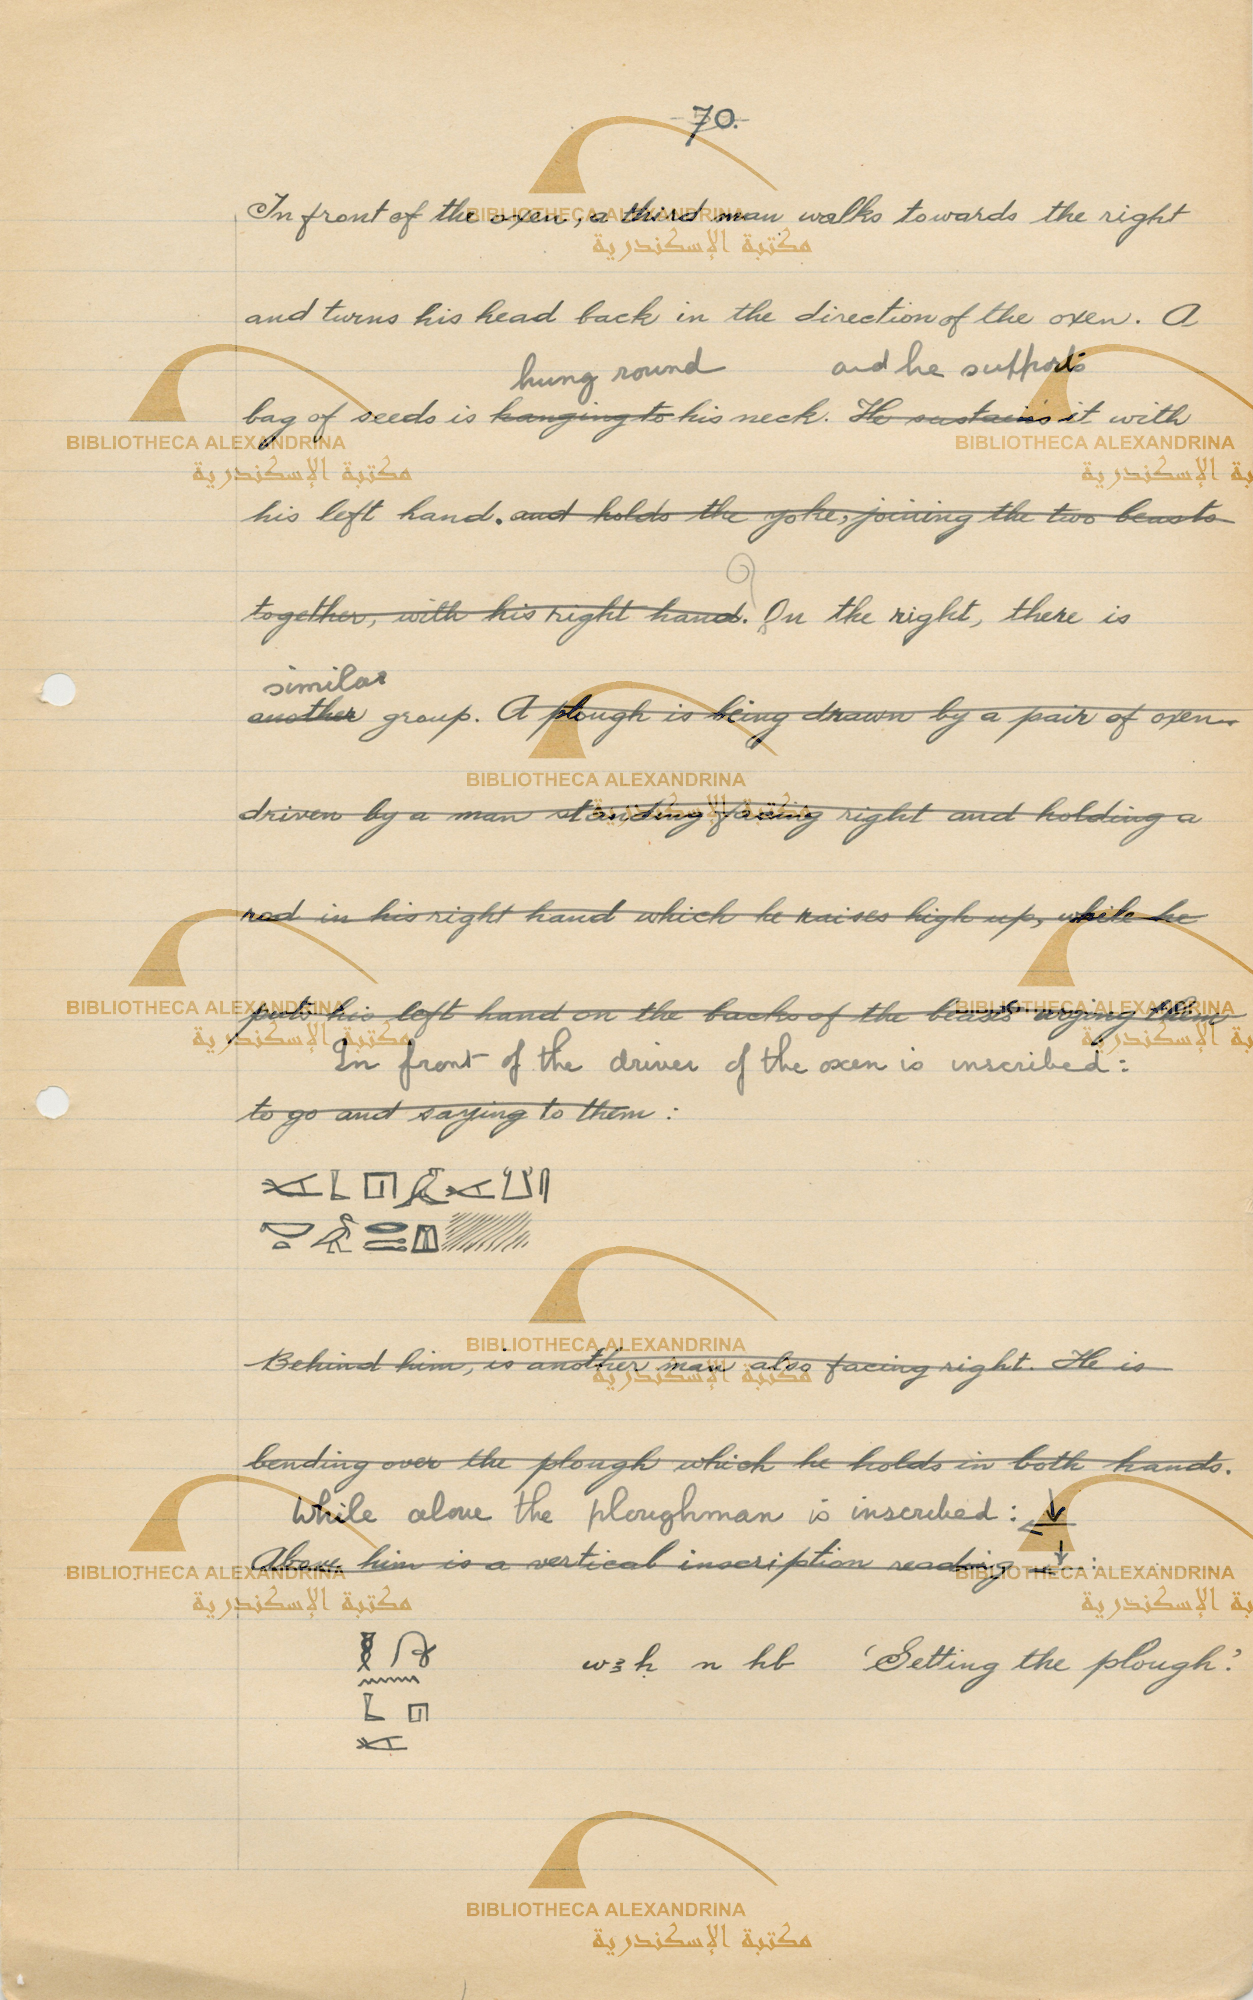 70.
In front of the oxen, a third man walks towards the right
and turns his head back in the direction of the oxen. A
hung round and he supports
bag of seeds is hanging to his neck. He sustains it with
his left hand. and holds the yoke, joining the two beasts
together, with his right hand. On the right, there is
similar
another group. A plough is being drawn by a pair of oxen
driven by a man standing facing right and holding a
rod in his right hand which he raises high up, while he
puts his left hand on the backs of the beasts urging them
In front of the driver of the oxen is inscribed:
to go and saying to them :
Behind him, is another man also facing right. He is
bending over the plough which he holds in both hands.
While above the ploughman is inscribed :
Above him is a vertical inscription reading :
wꜣḥ n hb 'Setting the plough.'
BIBLIOTHECA ALEXANDRINA
مكتبة الإسكندرية